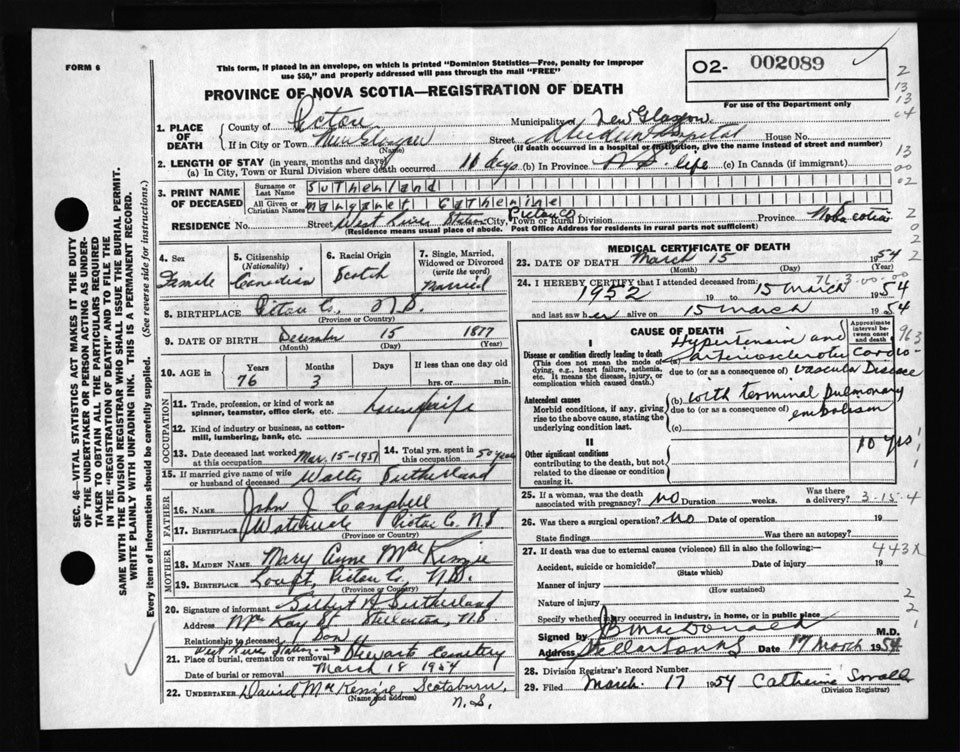 FORM 6
This form, if placed in an envelope, on which is printed "Dominion Statistics—Free, penalty for improper
use $50," and properly addressed will pass through the mail "FREE"
PROVINCE OF NOVA SCOTIA—REGISTRATION OF DEATH
O2- 002089
For use of the Department only
1. PLACE OF DEATH
County of Pictou Municipality of New Glasgow
If in City or Town New Glasgow Street Aberdeen Hospital House No.
(Name) (If death occurred in a hospital or institution, give the name instead of street and number)
2. LENGTH OF STAY (in years, months and days)
(a) In City, Town or Rural Division where death occurred 11 days (b) In Province N S life (c) In Canada (if immigrant)
3. PRINT NAME OF DECEASED
Surname or Last Name Sutherland
All Given or Christian Names Margaret Catherine
RESIDENCE No. Street West River Station Pictou Co City, Town or Rural Division Province Nova Scotia
(Residence means usual place of abode. Post Office Address for residents in rural parts not sufficient)
4. Sex Female
5. Citizenship (Nationality) Canadian
6. Racial Origin Scotch
7. Single, Married, Widowed or Divorced (write the word) Married
8. BIRTHPLACE Pictou Co, N.S.
(Province or Country)
9. DATE OF BIRTH December 15 1877
(Month) (Day) (Year)
10. AGE in Years Months Days If less than one day old
76 3 hrs. or min.
OCCUPATION
11. Trade, profession, or kind of work as spinner, teamster, office clerk, etc. housewife
12. Kind of industry or business, as cotton-mill, lumbering, bank, etc.
13. Date deceased last worked at this occupation Mar. 15-1951
14. Total yrs. spent in this occupation 50 years
15. If married give name of wife or husband of deceased Walter Sutherland
FATHER
16. Name John J Campbell
17. Birthplace Pictou Co. N.S
(Province or Country)
MOTHER
18. MAIDEN NAME Mary Anne MacKenzie
19. BIRTHPLACE Pictou Co, N.S.
(Province or Country)
20. Signature of informant Sutherland
Address McKay St Stellarton, N.S
Relationship to deceased Son
West River Station
21. Place of burial, cremation or removal Stewarts Cemetery
Date of burial or removal March 18 1954
22. UNDERTAKER David MacKenzie, Scotsburn, N.S.
(Name and address)
MEDICAL CERTIFICATE OF DEATH
23. DATE OF DEATH March 15 1954
(Month) (Day) (Year)
24. I HEREBY CERTIFY that I attended deceased from:
76-3-00-00
1952 19 to 15 March 1954
and last saw her alive on 15 March 1954
CAUSE OF DEATH
Approximate interval between onset and death
I
Disease or condition directly leading to death
(This does not mean the mode of dying, e.g., heart failure, asthenia, etc. It means the disease, injury, or complication which caused death.)
Hypertension and
arteriosclerotic cardio-
due to (or as a consequence of) vascular Disease
Antecedent causes
Morbid conditions, if any, giving rise to the above cause, stating the underlying condition last.
(b) with terminal pulmonary
due to (or as a consequence of) embolism
(c)
II
Other significant conditions
contributing to the death, but not related to the disease or condition causing it.
10 yrs
25. If a woman, was the death associated with pregnancy? no Duration weeks. Was there a delivery? 3-15-4
26. Was there a surgical operation? no Date of operation 19
State findings Was there an autopsy?
27. If death was due to external causes (violence) fill in also the following:— 443X
Accident, suicide or homicide? Date of injury 19
(State which)
Manner of injury
(How sustained)
Nature of injury
Specify whether injury occurred in industry, in home, or in public place
Signed by MacDonald M.D.
Address Stellarton NS Date 17 March 1954
28. Division Registrar's Record Number
29. Filed March 17 1954 Catherine Small
(Division Registrar)
SEC. 46—VITAL STATISTICS ACT MAKES IT THE DUTY
OF THE UNDERTAKER OR PERSON ACTING AS UNDER-
TAKER TO OBTAIN ALL THE PARTICULARS REQUIRED
IN THE "REGISTRATION OF DEATH" AND TO FILE THE
SAME WITH THE DIVISION REGISTRAR WHO SHALL ISSUE THE BURIAL PERMIT.
WRITE PLAINLY WITH UNFADING INK. THIS IS A PERMANENT RECORD.
Every item of information should be carefully supplied. (See reverse side for instructions.)